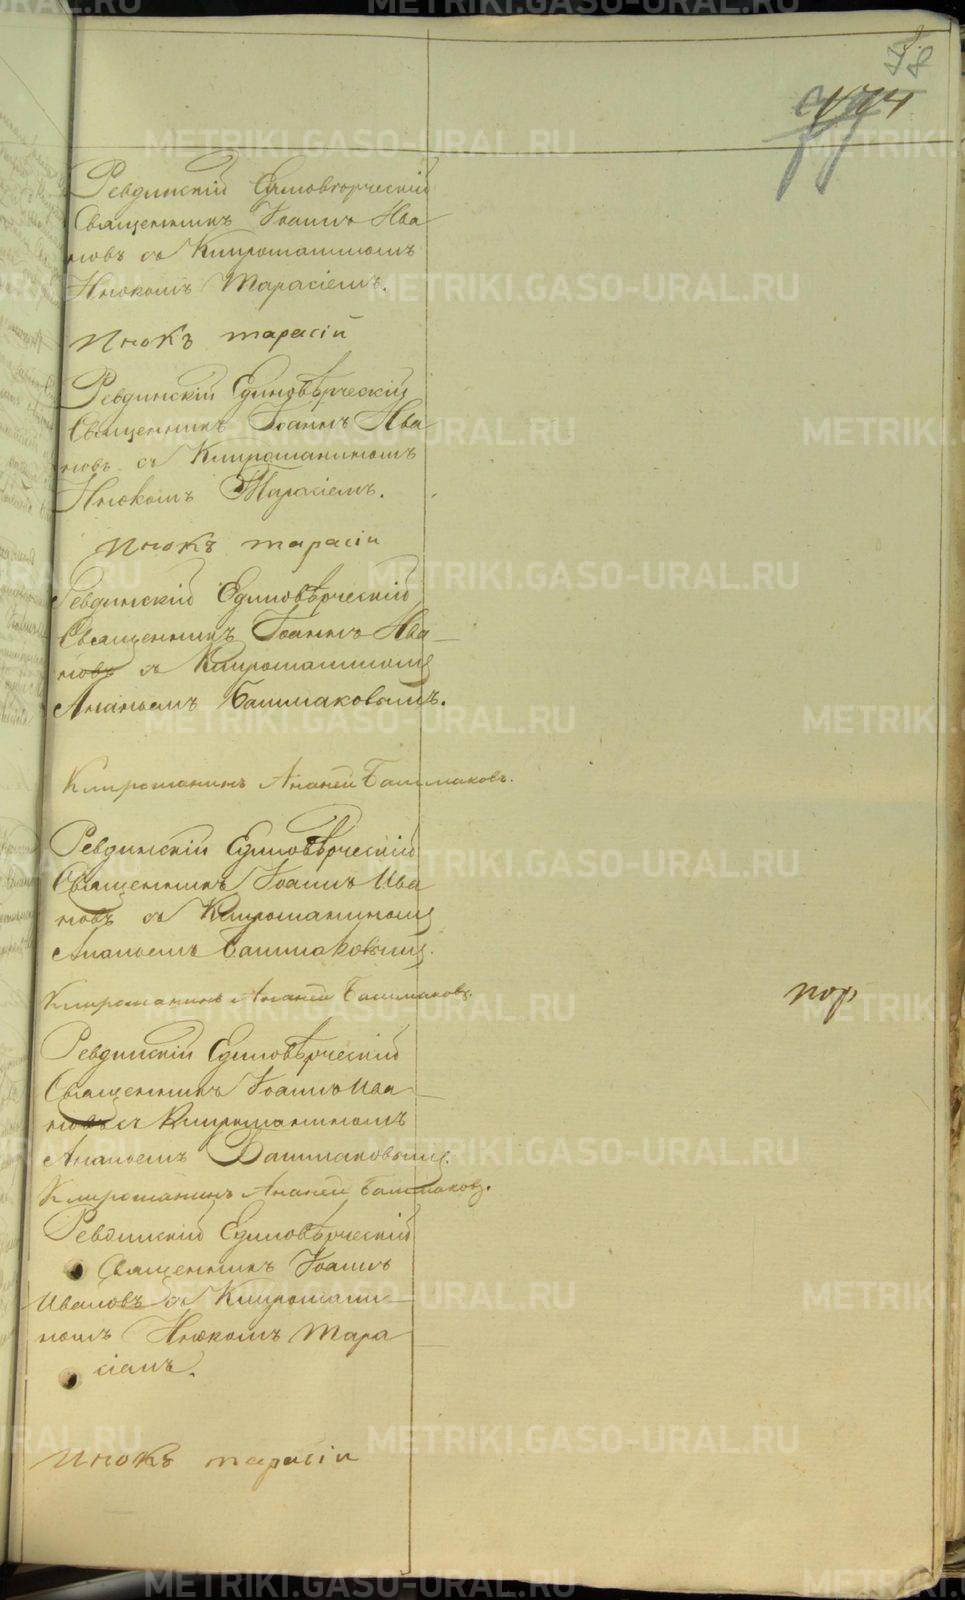 98
Ревдинскій Единоверческій
Священникъ Іоаннъ Ива
новъ съ Клирошаниномъ
Инокомъ Тарасіемъ.
Инокъ тарасій
Ревдинскій Единовѣрческій
Священникъ Іоаннъ Ива
новъ съ Клирошаниномъ
Инокомъ Тарасіемъ.
Инокъ тарасіи
Ревдинскій Единовѣрческій
Священникъ Іоаннъ Ива
новъ съ Клирошаниномъ
Ананьемъ Башмаковымъ.
Клирошанинъ Ананей Башмаковъ.
Ревдинскій Единовѣрческій
Священникъ Іоаннъ Ива
новъ съ Клирошаниномъ
Ананьемъ Башмаковымъ.
Клирошанинъ Ананей Башмаковъ.
пор
Ревдинскій Единовѣрческій
Священникъ Іоаннъ Ива
новъ съ Клирошаниномъ
Ананьемъ Башмаковымъ.
Клирошанинъ Ананей Башмаковъ.
Ревдинскій Единовѣрческій
Священникъ Іоаннъ
Ивановъ съ Клирошани
номъ Инокомъ Тара
сіемъ.
Инокъ тарасіи
METRIKI.GASO-URAL.RU